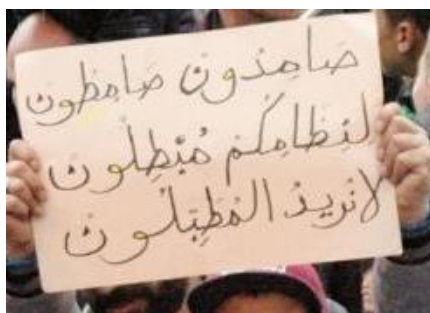 صَامِدُونَ صَامِطُون
لنِظَامِكُمْ مُبْطِلُون
لا نُريدُ المُطَبِّلُون